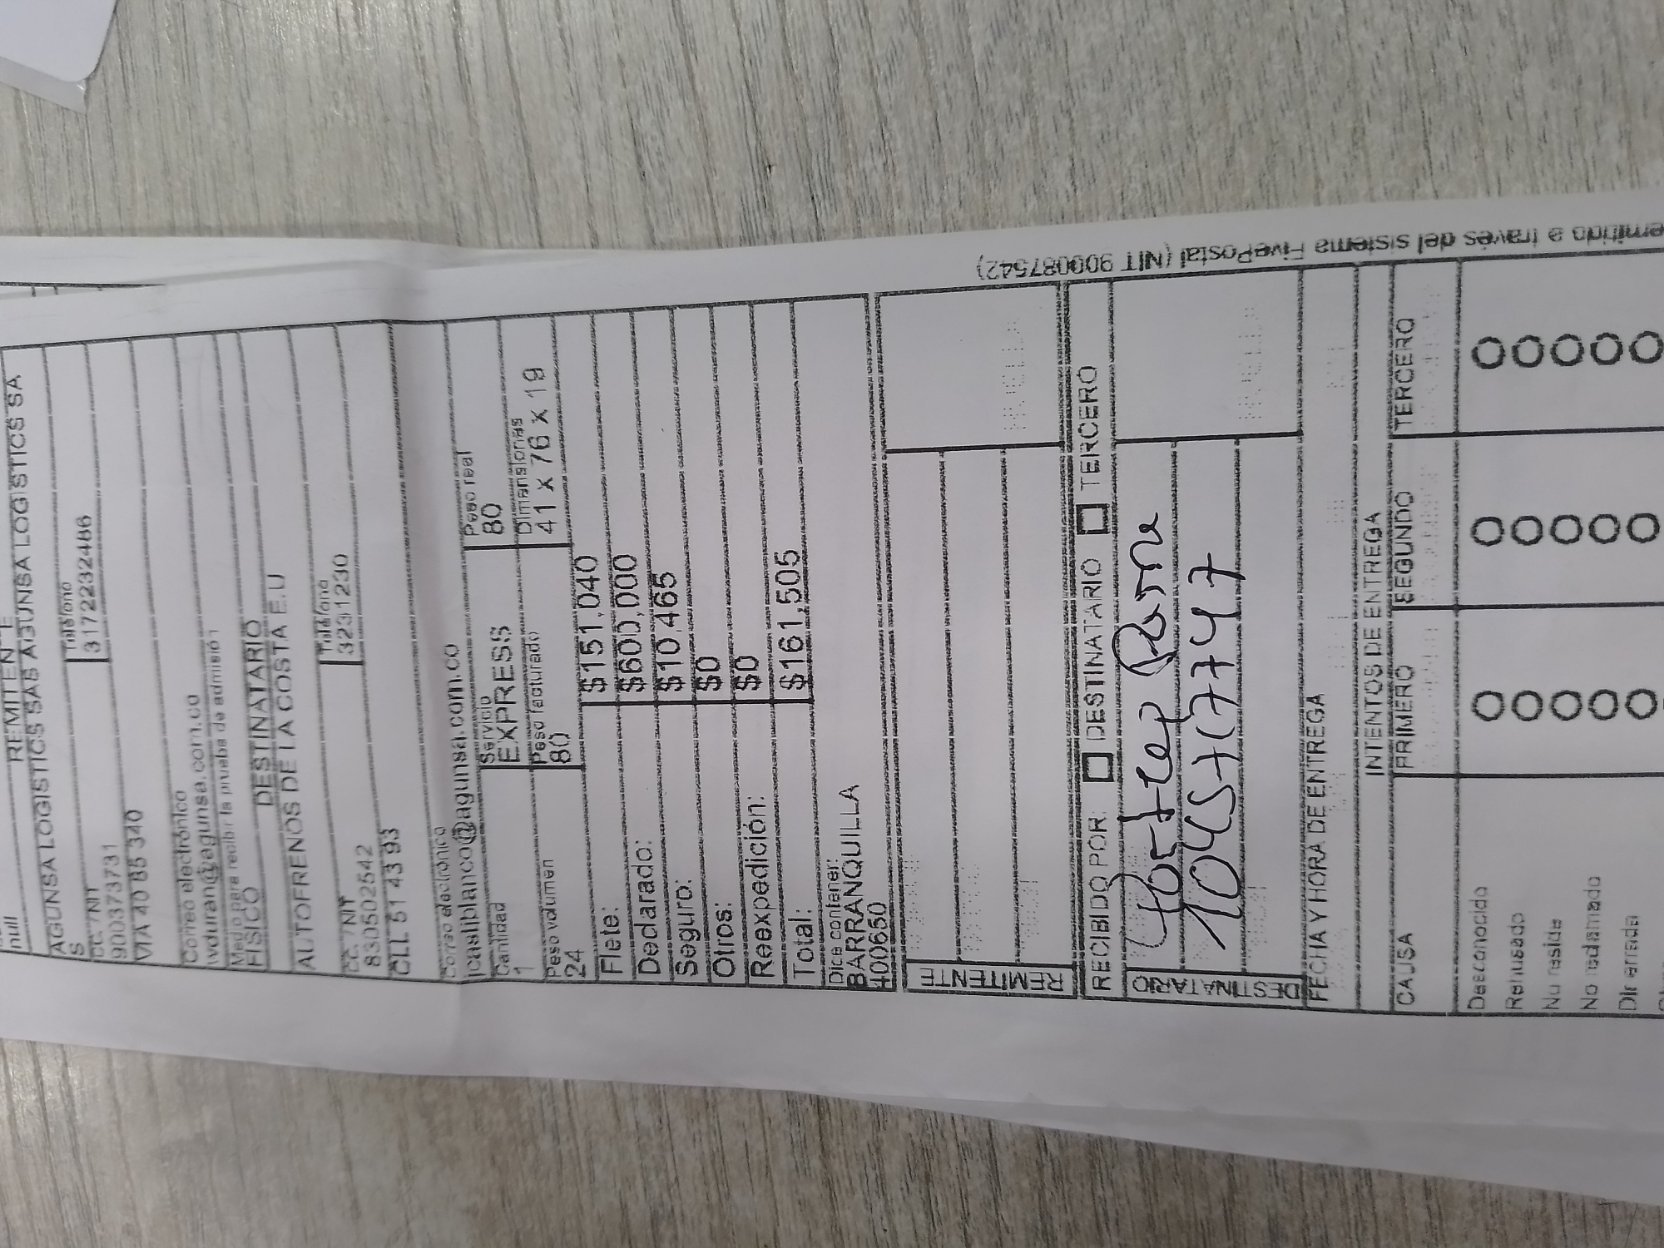 REMITENTE
AGUNSA LOGISTICS SAS AGUNSA LOGISTICS SA
S
CC. / NIT Teléfono
900373731 3172232486
VIA 40 85 340
Correo electrónico
lvduran@agunsa.com.co
Medio para recibir la prueba de admisión
FISICO
DESTINATARIO
AUTOFRENOS DE LA COSTA E.U
CC. / NIT Teléfono
830502542 3231230
CLL 51 43 93
Correo electrónico
jcastiblanco@agunsa.com.co
Cantidad Servicio Peso real
1 EXPRESS 80
Peso volumen Peso facturado Dimensiones
24 80 41 x 76 x 19
Flete: $151,040
Declarado: $600,000
Seguro: $10,465
Otros: $0
Reexpedición: $0
Total: $161,505
Dice contener:
BARRANQUILLA
400650
REMITENTE
RECIBIDO POR: DESTINATARIO TERCERO
DESTINATARIO
FECHA Y HORA DE ENTREGA
INTENTOS DE ENTREGA
CAUSA PRIMERO SEGUNDO TERCERO
Desconocido
Rehusado
No reside
No reclamado
Dir errada
emitido a través del sistema FivePostal (NIT 900087542)